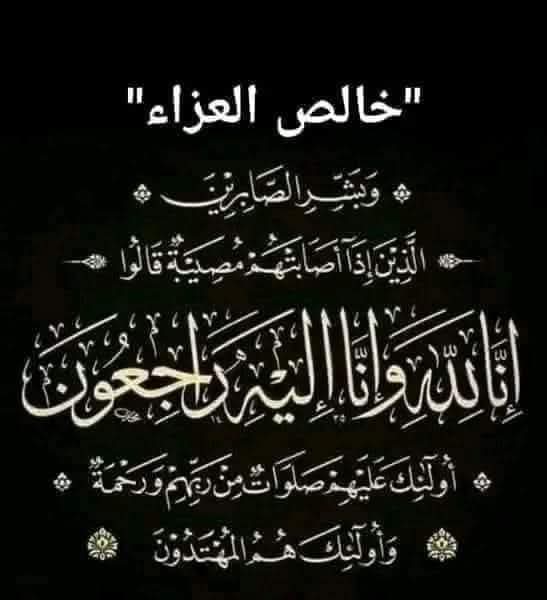 "خالص العزاء"
وَبَشِّرِ الصَّابِرِيْنَ
الَّذِيْنَ إِذَآ أَصَابَتْهُمْ مُصِيْبَةٌ قَالُوا
إِنَّا لِلَّهِ وَإِنَّا إِلَيْهِ رَاجِعُونَ
أُولَٰئِكَ عَلَيْهِمْ صَلَوَاتٌ مِنْ رَبِّهِمْ وَرَحْمَةٌ
وَأُولَٰئِكَ هُمُ الْمُهْتَدُوْنَ